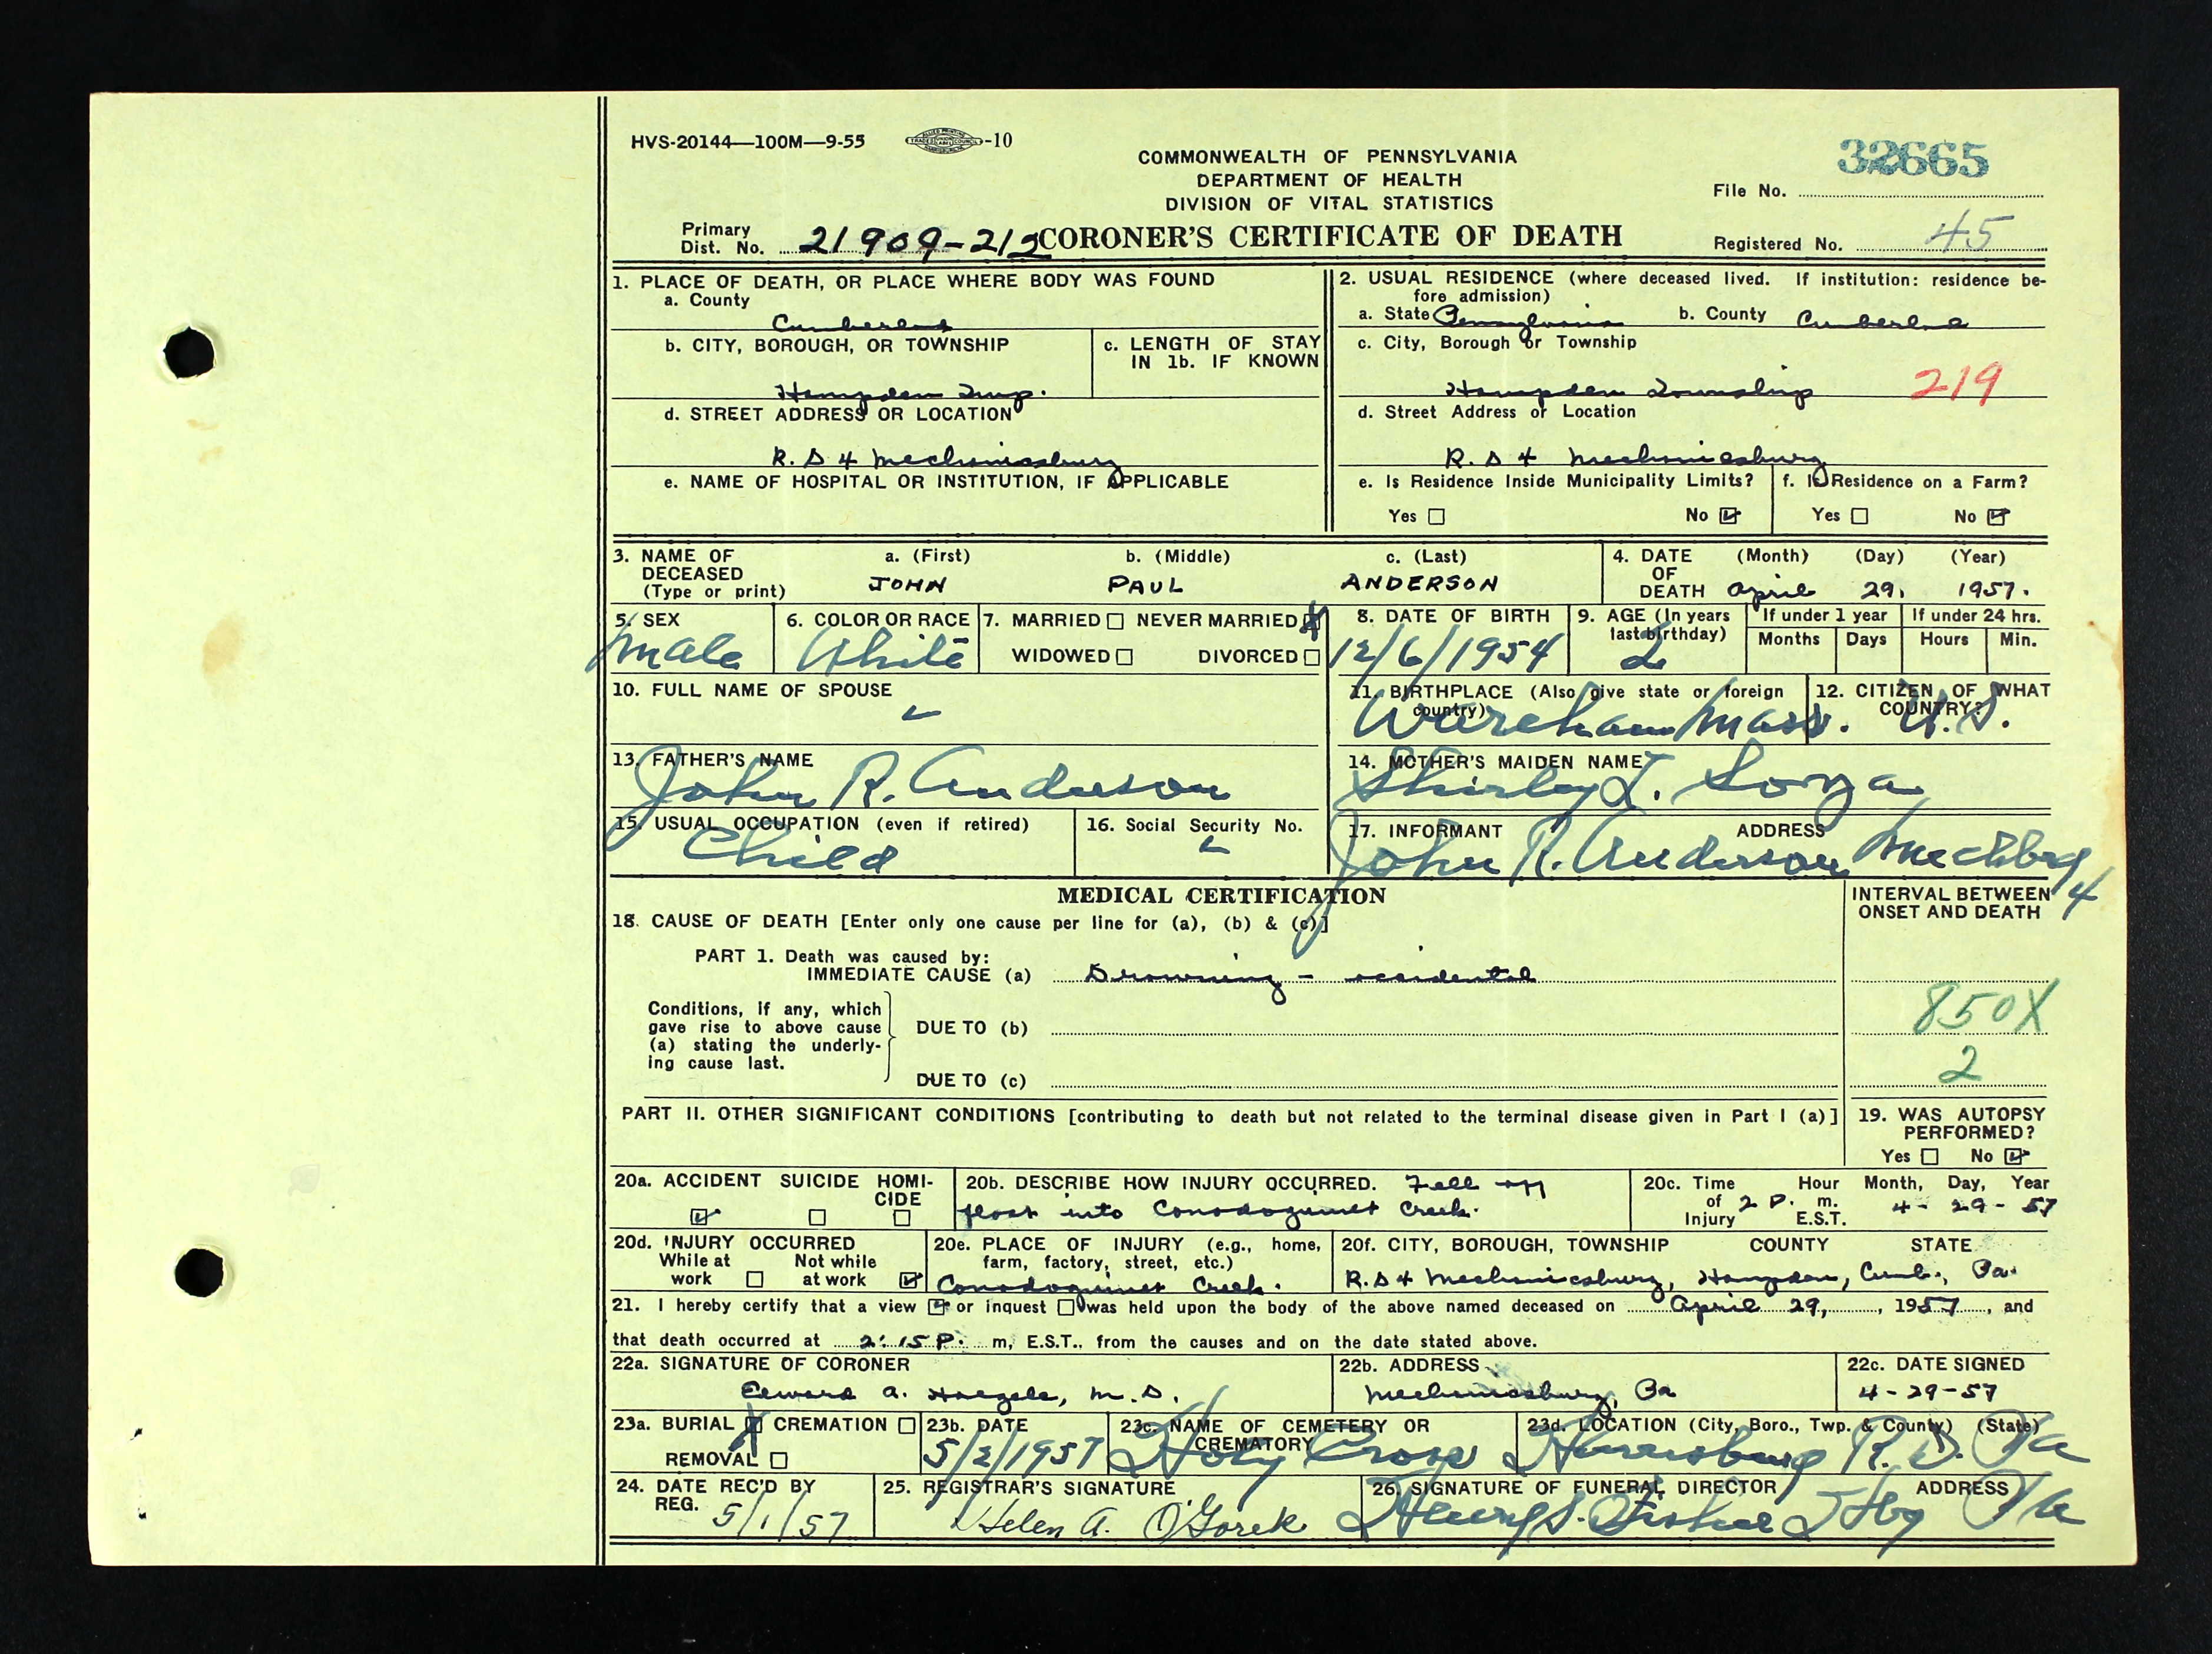 HVS-20144—100M—9-55 -10
COMMONWEALTH OF PENNSYLVANIA
DEPARTMENT OF HEALTH
DIVISION OF VITAL STATISTICS
32665
File No.
Primary Dist. No. 21909-212
CORONER'S CERTIFICATE OF DEATH
Registered No. 45
1. PLACE OF DEATH, OR PLACE WHERE BODY WAS FOUND
a. County
Cumberland
b. CITY, BOROUGH, OR TOWNSHIP
c. LENGTH OF STAY IN 1b. IF KNOWN
Hampden Twp.
d. STREET ADDRESS OR LOCATION
R. D 4 Mechanicsburg
e. NAME OF HOSPITAL OR INSTITUTION, IF APPLICABLE
2. USUAL RESIDENCE (where deceased lived. If institution: residence be-
fore admission)
a. State Pennsylvania b. County Cumberland
c. City, Borough or Township
Hampden Township 219
d. Street Address or Location
R. D 4 Mechanicsburg
e. Is Residence Inside Municipality Limits? f. Is Residence on a Farm?
Yes No Yes No
3. NAME OF DECEASED (Type or print)
a. (First) b. (Middle) c. (Last)
JOHN PAUL ANDERSON
4. DATE OF DEATH (Month) (Day) (Year)
April 29, 1957.
5. SEX
Male
6. COLOR OR RACE
White
7. MARRIED NEVER MARRIED
WIDOWED DIVORCED
8. DATE OF BIRTH
12/6/1954
9. AGE (In years last birthday)
2
If under 1 year If under 24 hrs.
Months Days Hours Min.
10. FULL NAME OF SPOUSE
11. BIRTHPLACE (Also give state or foreign country)
Wareham Mass.
12. CITIZEN OF WHAT COUNTRY?
U.S.
13. FATHER'S NAME
John R. Anderson
14. MOTHER'S MAIDEN NAME
Shirley I.
15. USUAL OCCUPATION (even if retired)
Child
16. Social Security No.
17. INFORMANT ADDRESS
John R. Anderson Mechbg 4
MEDICAL CERTIFICATION
INTERVAL BETWEEN
ONSET AND DEATH
18. CAUSE OF DEATH [Enter only one cause per line for (a), (b) & (c)]
PART 1. Death was caused by:
IMMEDIATE CAUSE (a) Drowning - accidental
Conditions, if any, which
gave rise to above cause
(a) stating the underly-
ing cause last.
DUE TO (b)
850X
DUE TO (c)
2
PART II. OTHER SIGNIFICANT CONDITIONS [contributing to death but not related to the terminal disease given in Part I (a)]
19. WAS AUTOPSY PERFORMED?
Yes No
20a. ACCIDENT SUICIDE HOMI-
CIDE
20b. DESCRIBE HOW INJURY OCCURRED. Fell off
float into Conodoguinet Creek.
20c. Time of Injury Hour Month, Day, Year
2 P. m. E.S.T. 4- 29- 57
20d. INJURY OCCURRED
While at work Not while at work
20e. PLACE OF INJURY (e.g., home,
farm, factory, street, etc.)
Conodoguinet Creek.
20f. CITY, BOROUGH, TOWNSHIP COUNTY STATE
R.D 4 Mechanicsburg, Hampden, Cumb., Pa.
21. I hereby certify that a view or inquest was held upon the body of the above named deceased on April 29, , 1957 , and
that death occurred at 2:15 P. m, E.S.T., from the causes and on the date stated above.
22a. SIGNATURE OF CORONER
Edward A. Haegele, M.D.
22b. ADDRESS
Mechanicsburg, Pa
22c. DATE SIGNED
4-29-57
23a. BURIAL CREMATION
REMOVAL
23b. DATE
5/2/1957
23c. NAME OF CEMETERY OR CREMATORY
Holy Cross
23d. LOCATION (City, Boro., Twp. & County) (State)
Harrisburg R. D. Pa
24. DATE REC'D BY REG.
5/1/57
25. REGISTRAR'S SIGNATURE
Helen A. O'Gorek
26. SIGNATURE OF FUNERAL DIRECTOR ADDRESS
Hbg Pa